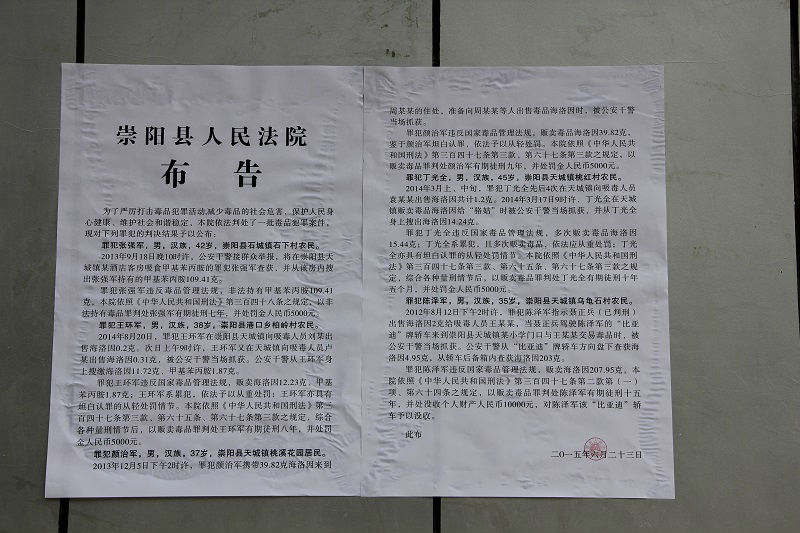 崇阳县人民法院
布 告
为了严厉打击毒品犯罪活动,减少毒品的社会危害，保护人民身
心健康，维护社会和谐稳定，本院依法判处了一批毒品犯罪案件。
现对下列罪犯的判决结果予以公布：
罪犯张强军，男，汉族，42岁，崇阳县石城镇石下村农民。
2013年9月18日晚10时许，公安干警接群众举报，将在崇阳县天
城镇某酒店客房吸食甲基苯丙胺的罪犯张强军查获，并从该房内搜
出张强军持有的甲基苯丙胺109.41克。
罪犯张强军违反毒品管理法规，非法持有毒品甲基苯丙胺109.41
克，本院依照《中华人民共和国刑法》第三百四十八条之规定，以非
法持有毒品罪判处张强军有期徒刑七年，并处罚金人民币5000元。
罪犯王环军，男，汉族，38岁，崇阳县港口乡柏岭村农民。
2014年8月20日，罪犯王环军在崇阳县天城镇向吸毒人员刘某出
售海洛因0.2克，次日上午9时许，王环军又在天城镇向吸毒人员卢
某出售海洛因0.31克，被公安干警当场抓获。公安干警从王环军身
上搜缴海洛因11.72克，甲基苯丙胺1.87克。
罪犯王环军违反国家毒品管理法规，贩卖海洛因12.23克，甲基
苯丙胺1.87克；王环军系累犯，依法予以从重处罚；王环军亦具有
坦白认罪的从轻处罚情节。本院依照《中华人民共和国刑法》第三
百四十七条第三款、第六十五条、第六十七条第三款之规定，综合
各种量刑情节后，以贩卖毒品罪判处王环军有期徒刑八年，并处罚
金人民币5000元。
罪犯颜治军，男，汉族，37岁，崇阳县天城镇桃溪花园居民。
2013年12月5日下午2时许，罪犯颜治军携带39.82克海洛因来到
周某某的住处，准备向周某某等人出售毒品海洛因时，被公安干警
当场抓获。
罪犯颜治军违反国家毒品管理法规，贩卖毒品海洛因39.82克，
鉴于颜治军坦白认罪，依法予以从轻处罚。本院依照《中华人民共
和国刑法》第三百四十七条第三款、第六十七条第三款之规定，以
贩卖毒品罪判处颜治军有期徒刑九年，并处罚金人民币5000元。
罪犯丁光全，男，汉族，45岁，崇阳县天城镇桃红村农民。
2014年3月上、中旬，罪犯丁光全先后4次在天城镇向吸毒人员
袁某某出售海洛因共计1.2克。2014年3月17日9时许，丁光全在天城
镇贩卖毒品海洛因给“骆姑”时被公安干警当场抓获，并从丁光全
身上搜出海洛因14.24克。
罪犯丁光全违反国家毒品管理法规，多次贩卖毒品海洛因
15.44克；丁光全系累犯，且多次贩卖毒品，依法应从重处罚；丁光
全亦具有坦白认罪的从轻处罚情节。本院依照《中华人民共和国刑
法》第三百四十七条第三款、第六十五条、第六十七条第三款之规
定，综合各种量刑情节后，以贩卖毒品罪判处丁光全有期徒刑十年
五个月，并处罚金人民币5000元。
罪犯陈泽军，男，汉族，35岁，崇阳县天城镇乌龟石村农民。
2012年8月12日下午2时许，罪犯陈泽军指示聂正兵（已判刑）
出售海洛因2克给吸毒人员王某某，当聂正兵驾驶陈泽军的“比亚
迪”牌轿车来到崇阳县天城镇某小学门口与王某某交易毒品时，被
公安干警当场抓获。公安干警从“比亚迪”牌轿车方向盘下查获海
洛因4.95克，从轿车后备箱内查获海洛因203克。
罪犯陈泽军违反国家毒品管理法规，贩卖海洛因207.95克，本
院依照《中华人民共和国刑法》第三百四十七条第二款第（一）
项、第六十四条之规定，以贩卖毒品罪判处陈泽军有期徒刑十五
年，并处没收个人财产人民币10000元，对陈泽军该“比亚迪”轿
车予以没收。
此布
二〇一五年六月二十三日